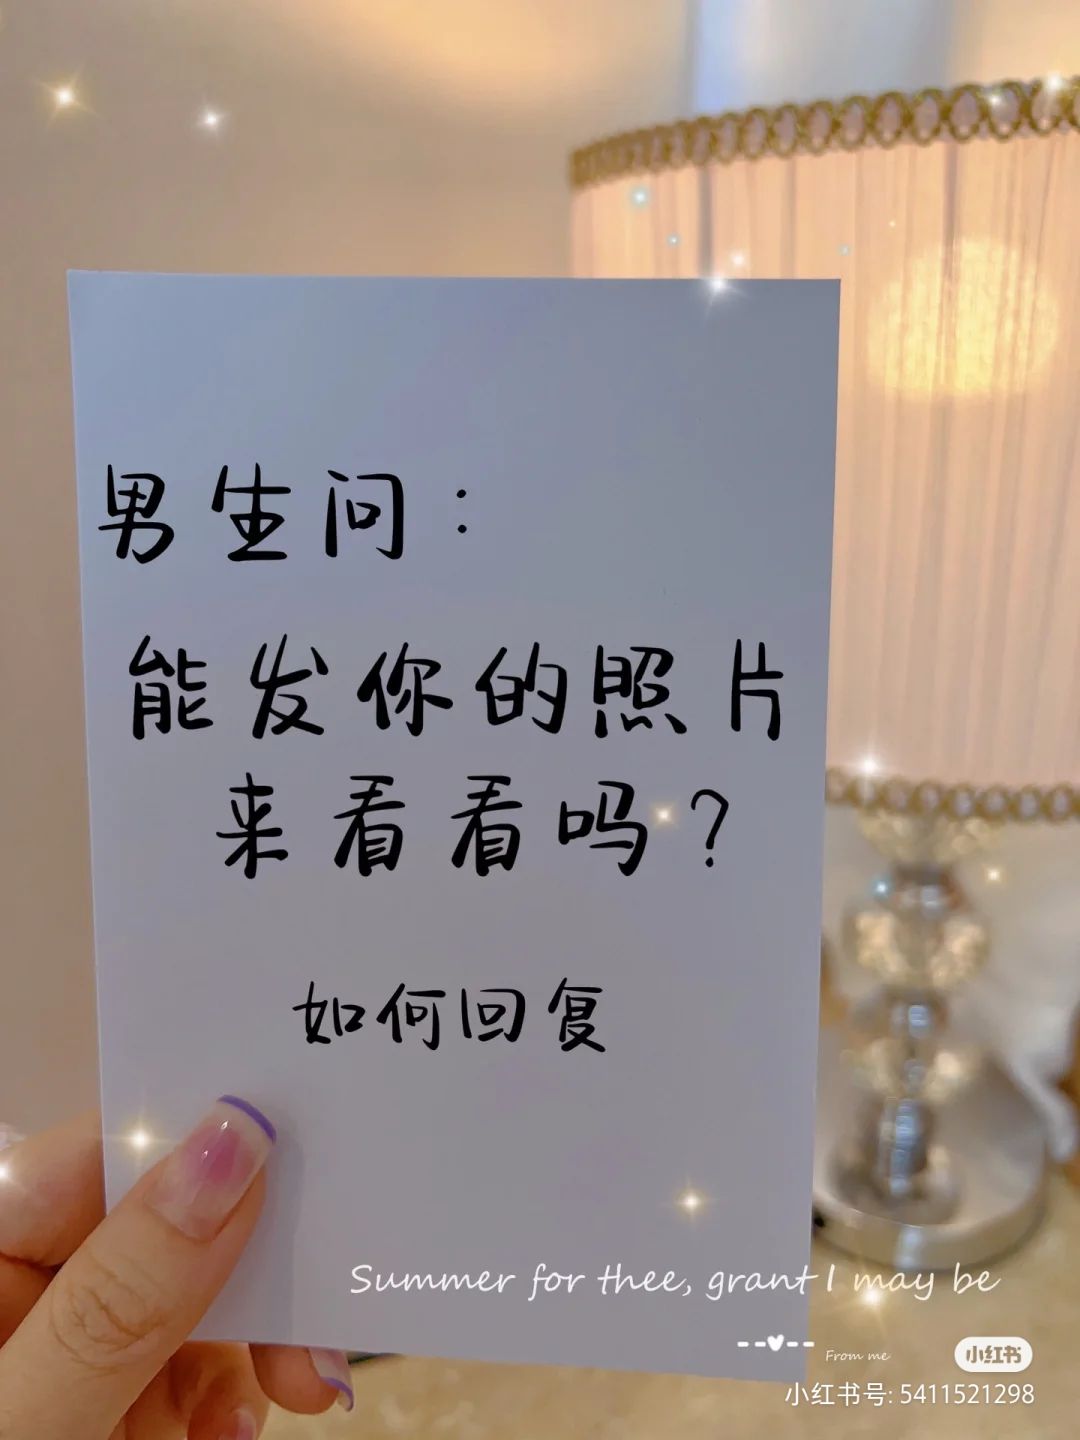 男生问：
能发你的照片
来看看吗？
如何回复
Summer for thee, grant I may be
From me
小红书
小红书号: 5411521298